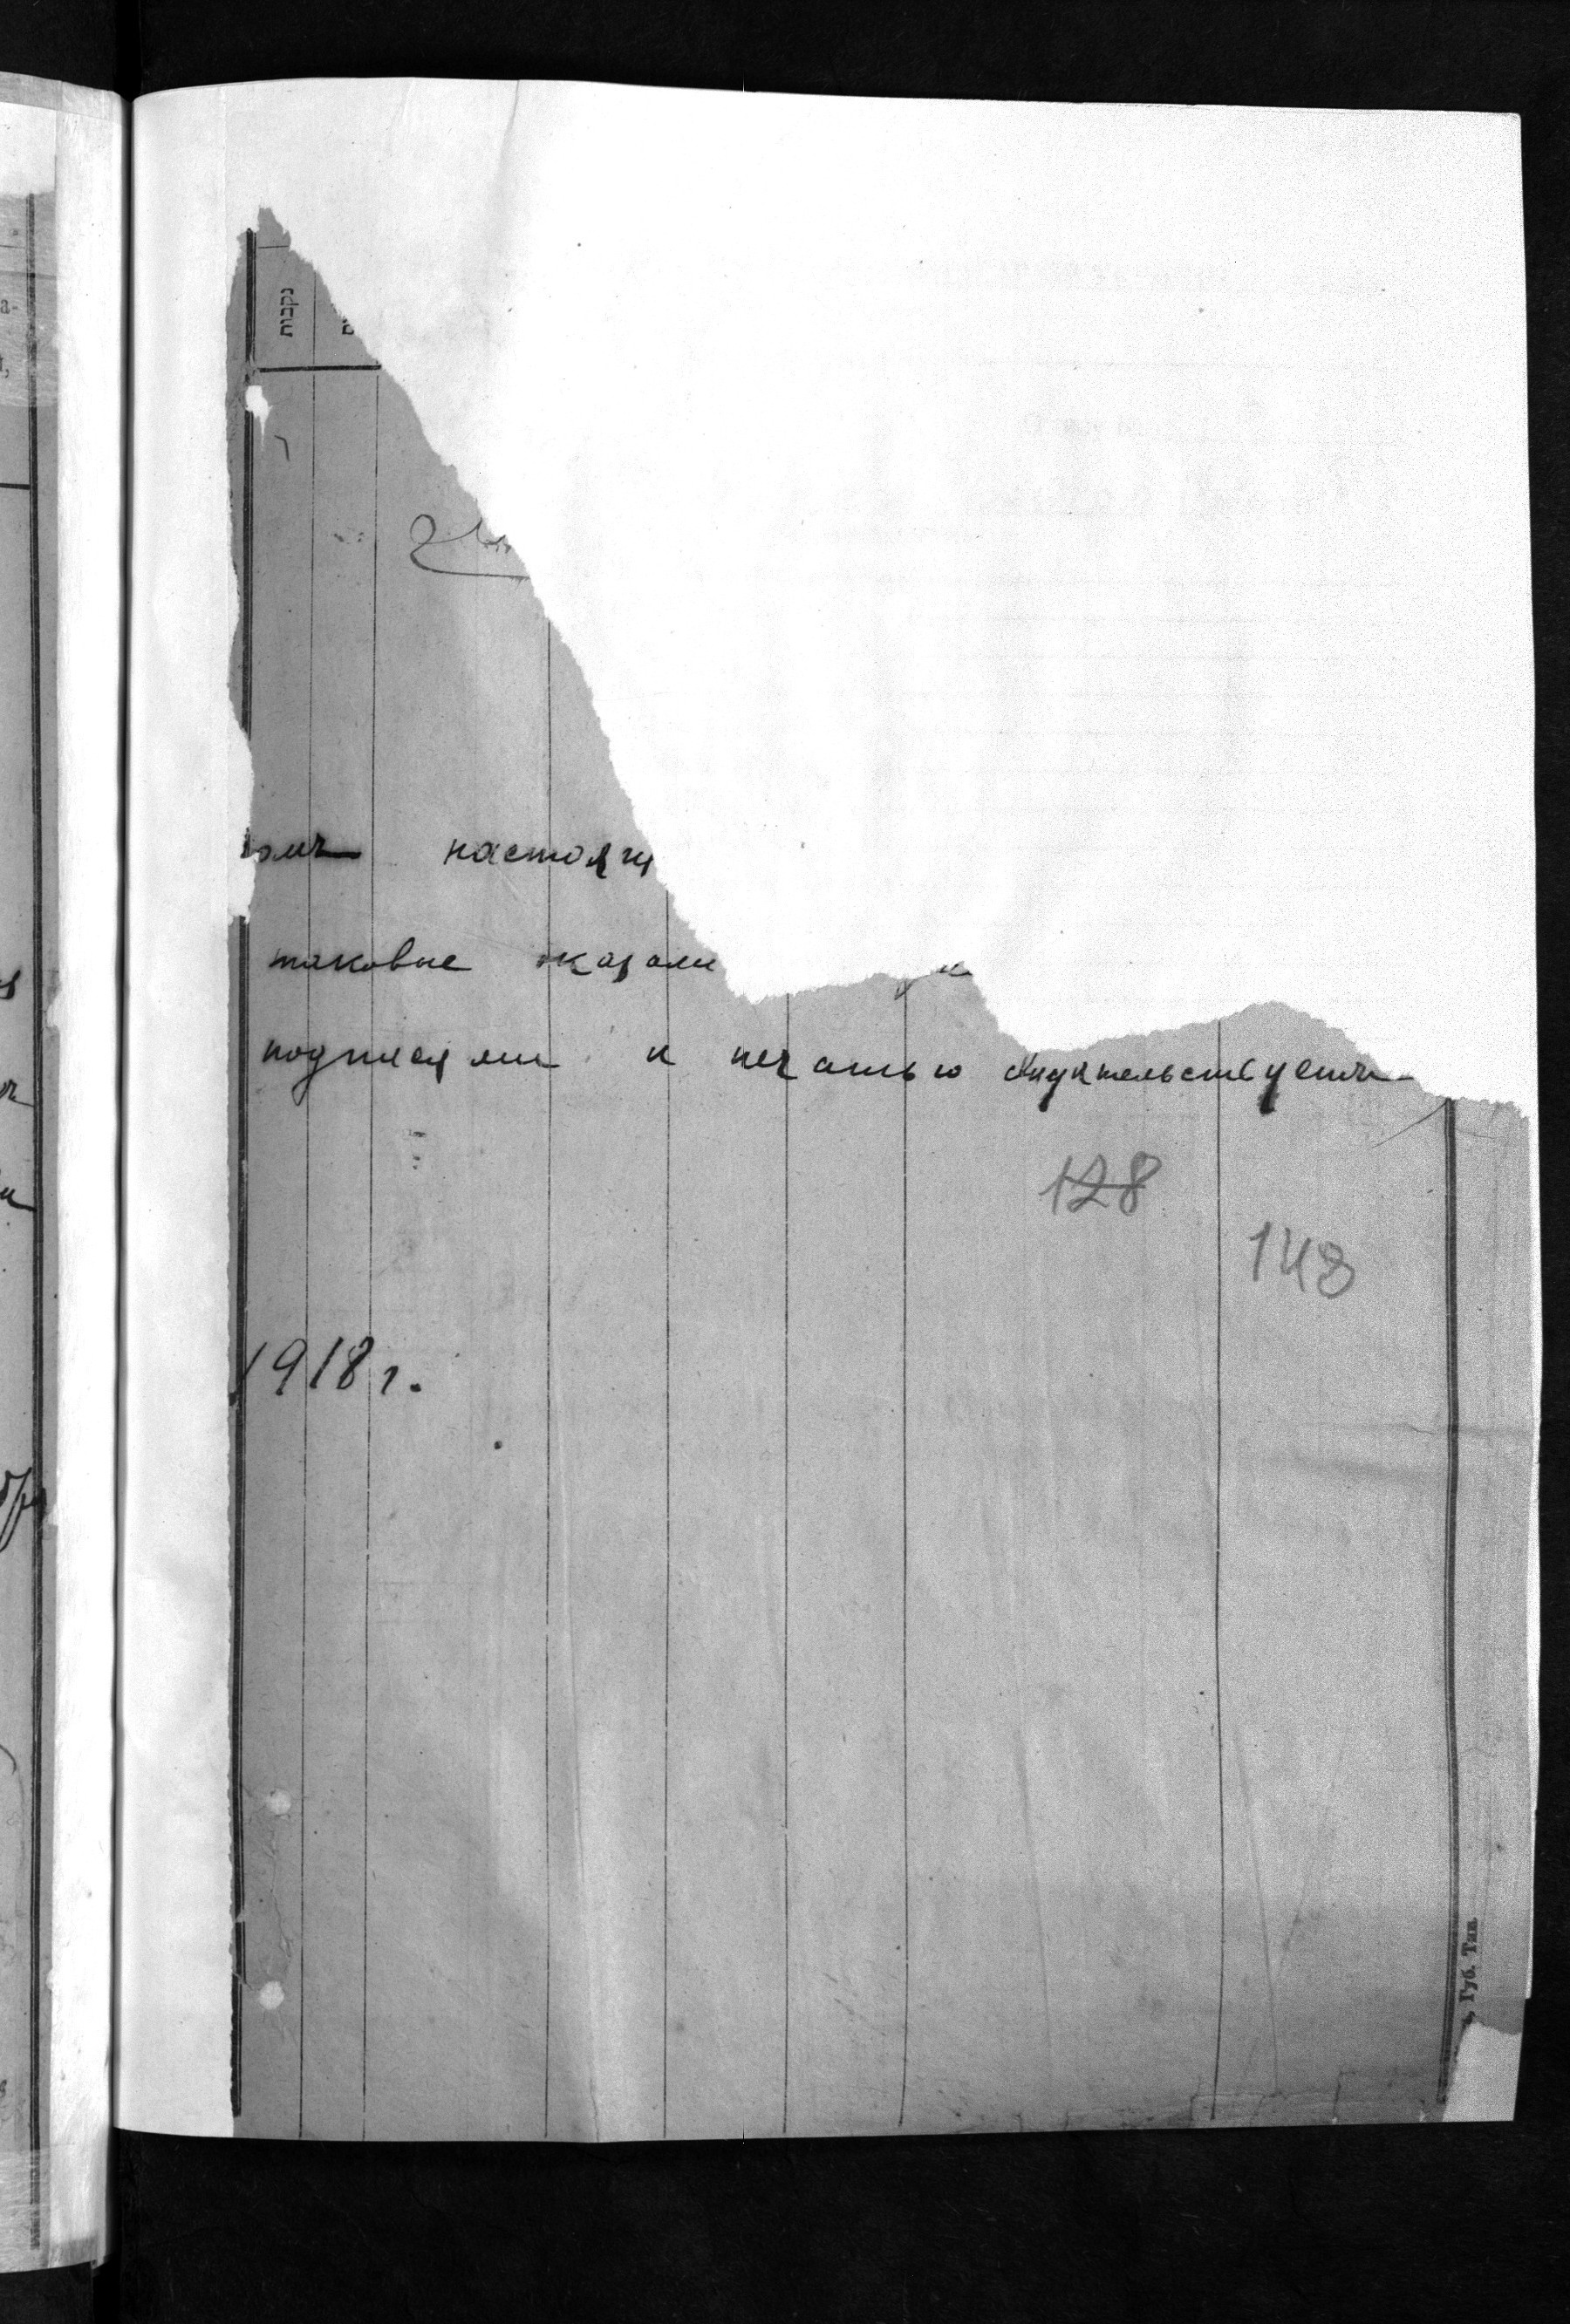 נקבות
омъ настоящ
таковые оказали
подписями и печатью свидѣтельствуетъ
128
148
1918 г.
Губ. Тип.